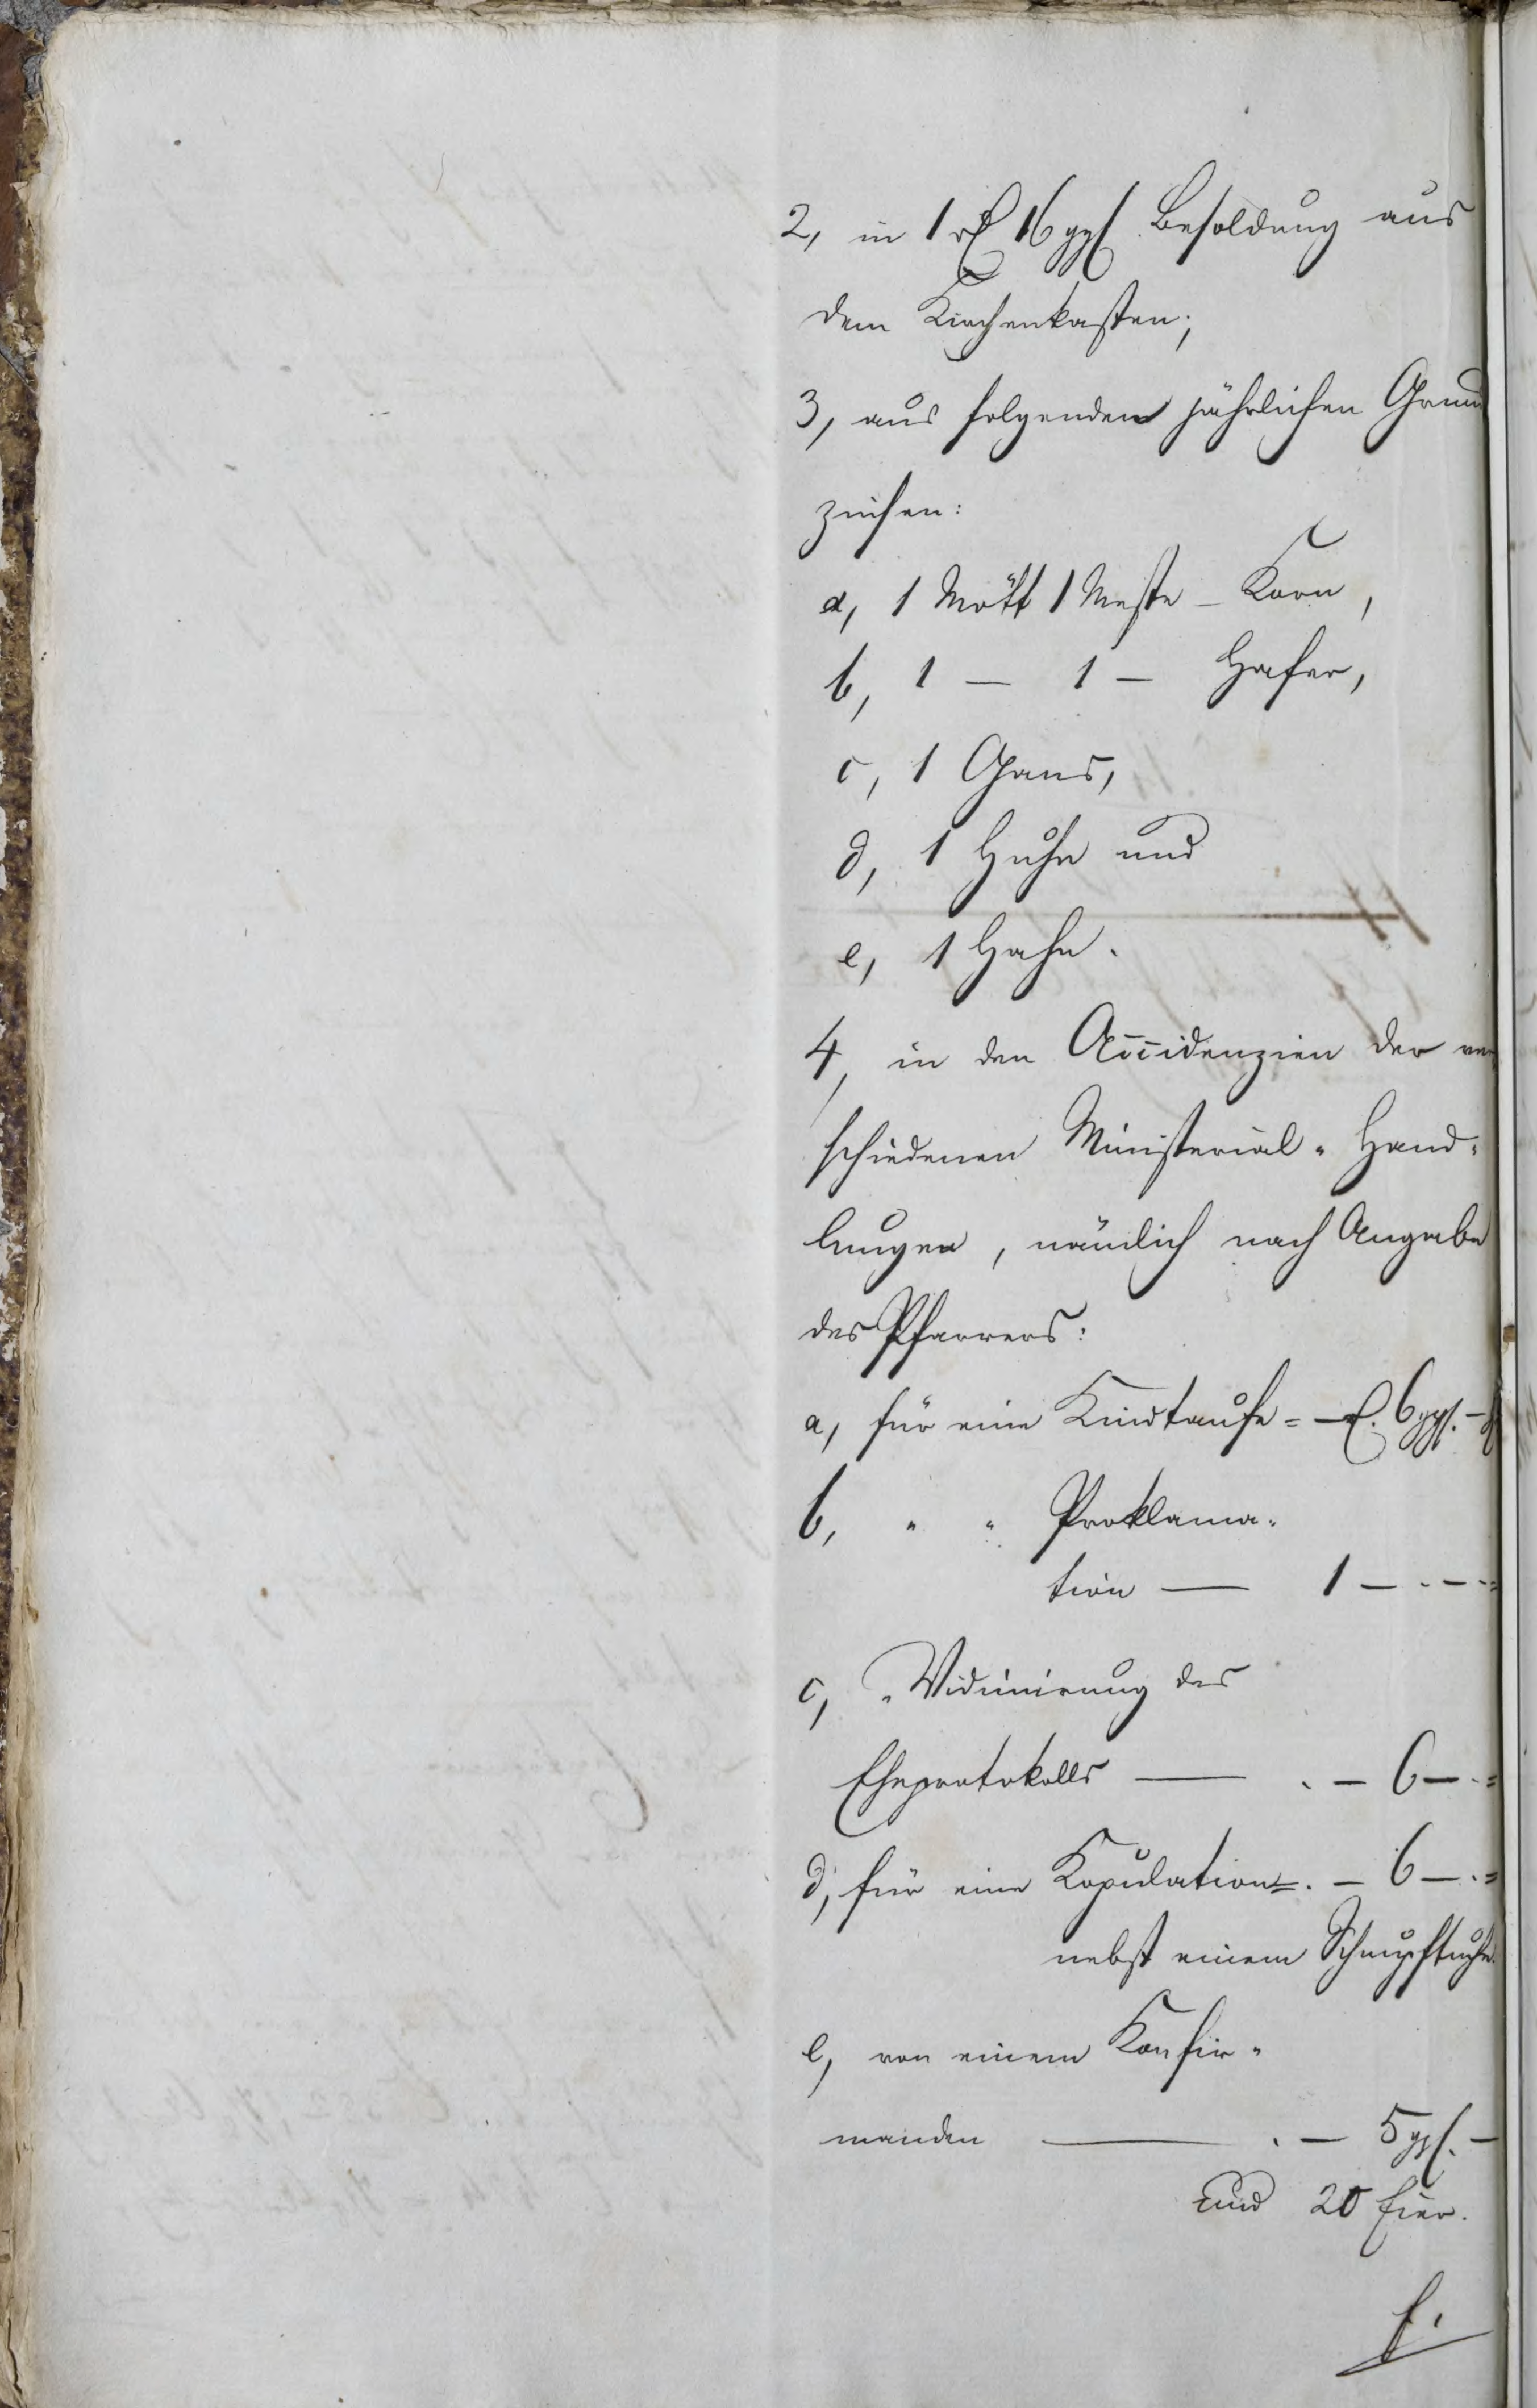 2, in 1 rℓ 16 ggl. Besoldung aus
dem Kirchenkasten;
3, aus folgenden jährlichen Grund
zinsen:
a, 1 Mött 1 Meste - Korn,
b, 1 — 1 — Hafer,
c, 1 Gans,
d, 1 Huhn und
e, 1 Hahn.
4, in den Accidenzien der ver
schiedenen Ministerial-Hand-
lungen, nämlich nach Angabe
des Pfarrers:
a, für eine Kindtaufe = — rℓ. 6 ggl. —
b, " " Proklama-
tion — 1 — . — . =
c, " Vidimirung des
Eheprotokolls — . — 6 — . =
d, für eine Kopulation = . — 6 — . =
nebst einem Schnupftuche.
e, von einem Konfir-
manden — . — 5 ggl. —
und 20 Eier.
f.